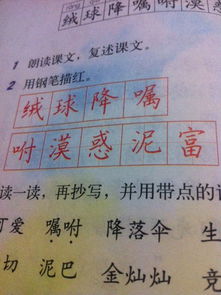 绒球降嘱咐漠
1 朗读课文，复述课文。
2 用钢笔描红。
绒球降嘱
咐漠惑泥富
读一读，再抄写，并用带点的
可爱 嘱咐 降落伞 生
切 泥巴 金灿灿 竞